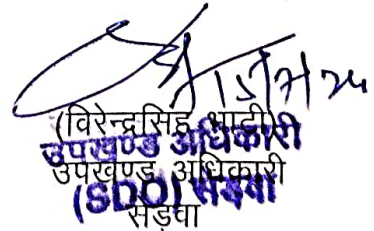 15/7/24
(विरेन्द्रसिंह भाटी)
उपखण्ड अधिकारी
उपखण्ड अधिकारी
(SDO) सेड़वा
सेड़वा